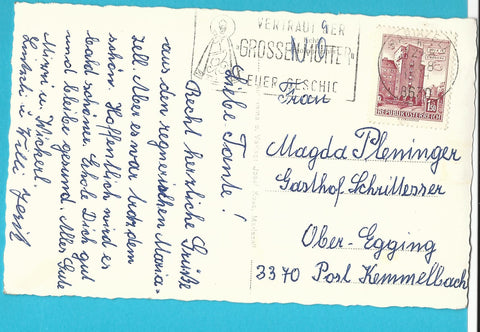 Liebe Tante!
Recht herzliche Grüße
aus dem regnerischen Maria-
zell. Aber es war trotzdem
schön. Hoffentlich wird es
bald schöner. Erhole Dich gut
und bleibe gesund. Alles Gute
Mizzi u. Wickerl.
VERTRAUT DER
GROSSEN MUTTER
EUER GESCHIC
8630
REPUBLIK ÖSTERREICH
Frau
Magda Pleninger
Gasthof Schrittesser
Ober-Egging
3370 Post Kemmelbach